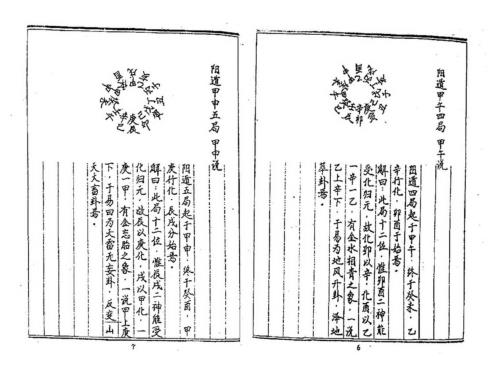 阳道甲午四局 甲午说
阳道四局起于甲午，终于癸未，乙
辛行化，卯酉于始焉。
解曰：此局十二位，惟卯酉二神能
受化归元，故化卯以辛，化酉以乙
一辛一乙，有金水相育之象，一说
乙上辛下，于易为地风升卦，泽地
萃卦焉。
6
阳道甲申五局 甲申说
阳道五局起于甲申，终于癸酉，甲
庚行化，辰戌分始焉。
解曰：此局十二位，惟辰戌二神能受
化归元，故辰以庚化，戌以甲化，一
庚一甲，有金忘胎之象，一说甲上庚
下，于易曰为天雷无妄卦，反变山
天大畜卦焉。
7